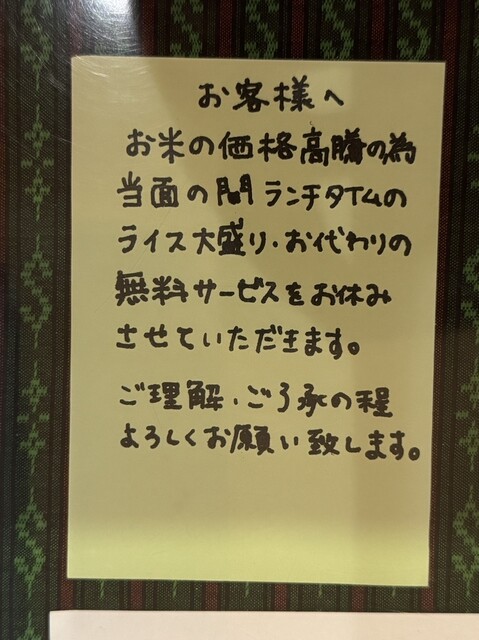 お客様へ
お米の価格高騰の為
当面の間ランチタイムの
ライス大盛り・お代わりの
無料サービスをお休み
させていただきます。
ご理解・ご了承の程
よろしくお願い致します。